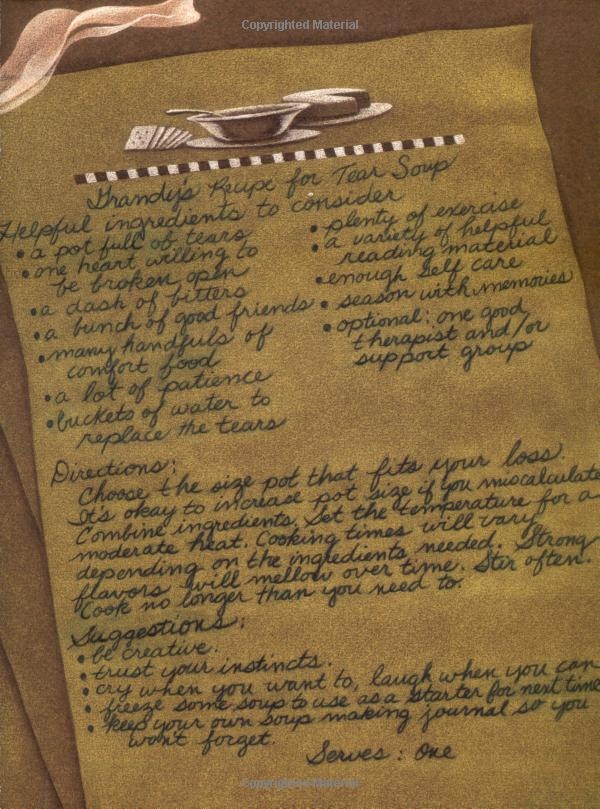 Copyrighted Material
Grandy's Recipe for Tear Soup
Helpful ingredients to consider
• a pot full of tears
• one heart willing to
be broken open
• a dash of bitters
• a bunch of good friends
• many handfuls of
comfort food
• a lot of patience
• buckets of water to
replace the tears
• plenty of exercise
• a variety of helpful
reading material
• enough self care
• season with memories
• optional: one good
therapist and/or
support group
Directions:
Choose the size pot that fits your loss.
It's okay to increase pot size if you miscalculate.
Combine ingredients. Set the temperature for a
moderate heat. Cooking times will vary
depending on the ingredients needed. Strong
flavors will mellow over time. Stir often.
Cook no longer than you need to.
Suggestions:
• be creative.
• trust your instincts.
• cry when you want to, laugh when you can
• freeze some soup to use as a starter for next time
• keep your own soup making journal so you
won't forget.
Serves: One
Copyrighted Material